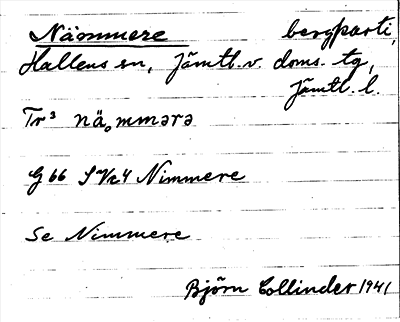 Nämmere bergparti,
Hallens sn, Jämtl. v. doms. tg,
Jämtl. l.
Tr³ nä₀mmərə
G 66 S Vc4 Nimmere
Se Nimmere
Björn Collinder 1941